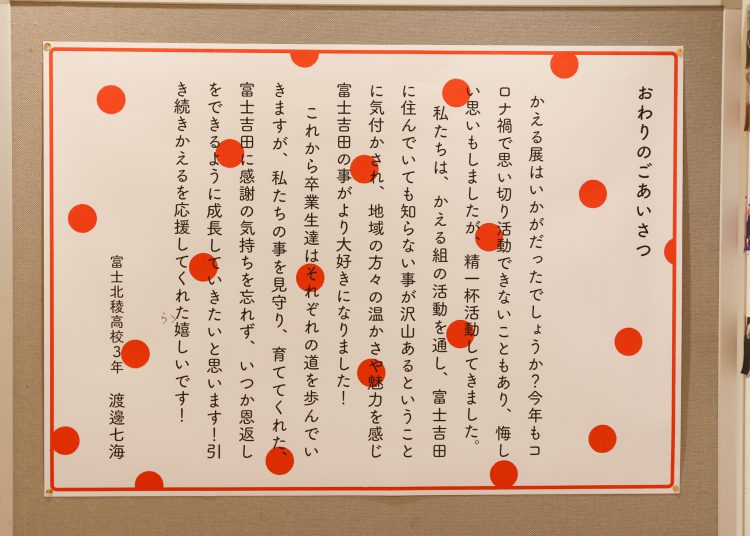 おわりのごあいさつ
かえる展はいかがだったでしょうか？今年もコ
ロナ禍で思い切り活動できないこともあり、悔し
い思いもしましたが、精一杯活動してきました。
私たちは、かえる組の活動を通し、富士吉田
に住んでいても知らない事が沢山あるということ
に気付かされ、地域の方々の温かさや魅力を感じ
富士吉田の事がより大好きになりました！
これから卒業生達はそれぞれの道を歩んでい
きますが、私たちの事を見守り、育ててくれた、
富士吉田に感謝の気持ちを忘れず、いつか恩返し
をできるように成長していきたいと思います！引
き続きかえるを応援してくれた嬉しいです！
ら
富士北稜高校３年　渡邊七海